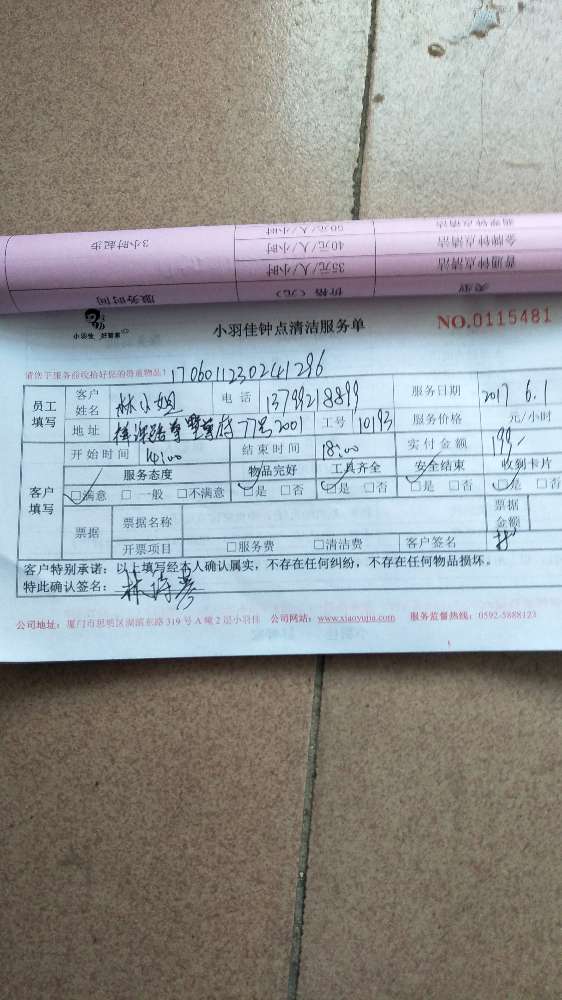 3小时起步
50元/人/小时
40元/人/小时 金牌钟点清洁
35元/人/小时 普通钟点清洁
服务时间 价格（元） 类型
小羽佳 好管家
小羽佳钟点清洁服务单
NO.0115481
请您于服务前收拾好您的贵重物品！1706011230241296
员工填写 客户姓名 林小姐 电话 13799218899 服务日期 2017 6.1
地址 77号2001 工号 10193 服务价格 元/小时
开始时间 14:00 结束时间 18:00 实付金额 199
客户填写 服务态度 物品完好 工具齐全 安全结束 收到卡片
□满意 □一般 □不满意 □是 □否 □是 □否 □是 □否 □是 □否
票据 票据名称 票据金额
开票项目 □服务费 □清洁费 客户签名
客户特别承诺：以上填写经本人确认属实，不存在任何纠纷，不存在任何物品损坏。
特此确认签名：林
公司地址：厦门市思明区湖滨东路319号A幢2层小羽佳 公司网站：www.xiaoyujia.com 服务监督热线：0592-5888123